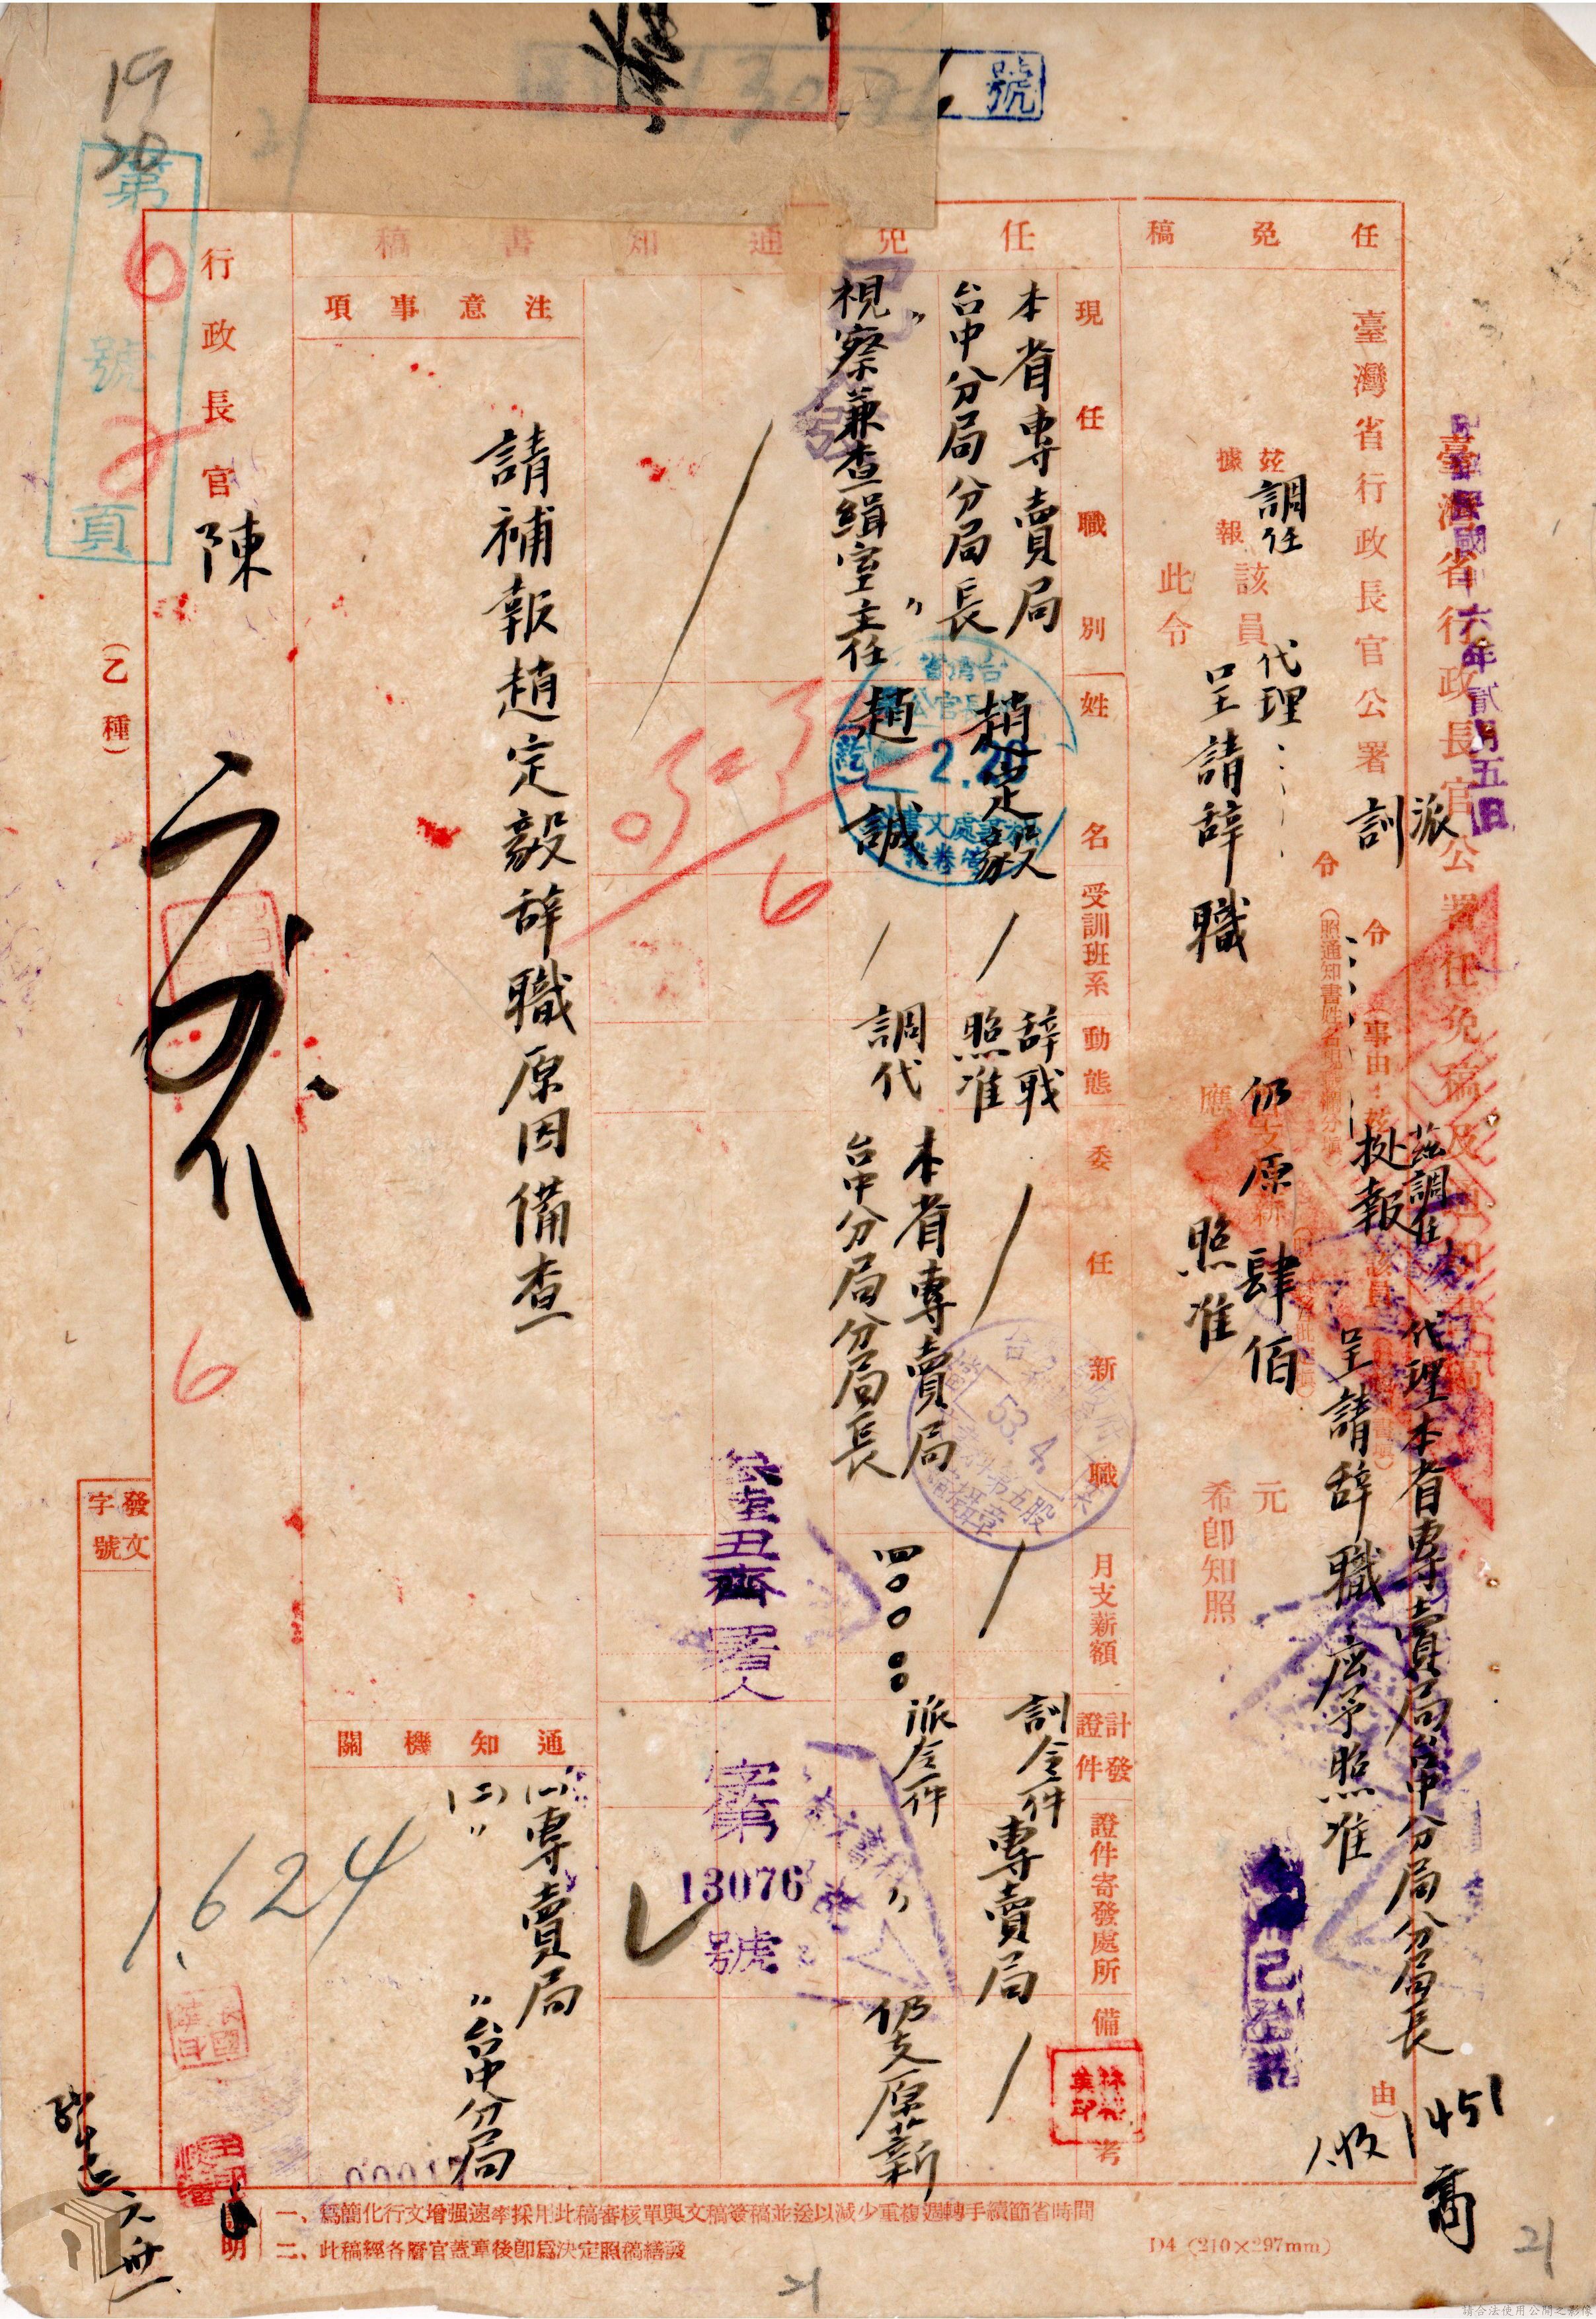 臺灣省行政長官公署任免稿及通知書稿
任免稿
臺灣省行政長官公署
派
訓
令
令
(事由：茲
茲調任
代理本省專賣局台中分局分局長
據報
該員
呈請辞職應予照准
由)
茲
據報
調任
該員
代理
呈請辞職
仍支原薪
肆佰
元
應
照准
希即知照
此令
任免通知書稿
現任職別
姓名
受訓班系
動態
委任新職
月支薪額
計發證件
證件寄發處所
備考
本省專賣局
台中分局分局長
趙定毅
辞職
照准
訓令一件
專賣局
〃視察兼查緝室主任
趙誠
調代
本省專賣局
台中分局分局長
四〇〇.〇〇
派令一件
〃
仍支原薪
丑齊署人字第13076號
注意事項
請補報趙定毅辞職原因備查
通知機關
(一)專賣局
(二)〃〃台中分局
行政長官
陳
(乙種)
發文字號
1.624
第6號2頁
19
20
號
2.20
53.4.
第五股
已登記
1451
一、爲簡化行文增强速率採用此稿審核單與文稿簽稿並送以減少重複週轉手續節省時間
二、此稿經各層官蓋章後卽爲決定照稿繕發
說明
D4 (210×297mm)
21
21
請合法使用公開之影像